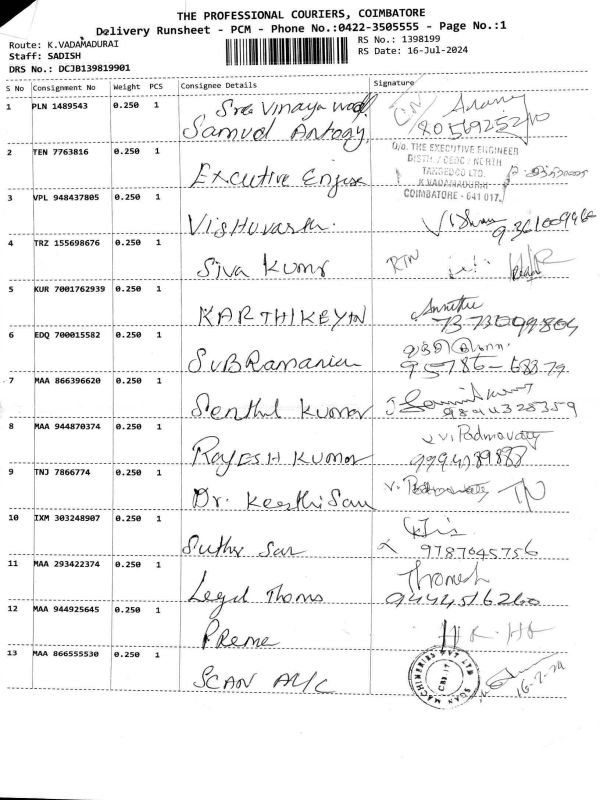 THE PROFESSIONAL COURIERS, COIMBATORE
Delivery Runsheet - PCM - Phone No.:0422-3505555 - Page No.:1
Route: K.VADAMADURAI
RS No.: 1398199
Staff: SADISH
RS Date: 16-Jul-2024
DRS No.: DCJB139819901
S No Consignment No Weight PCS Consignee Details Signature
1 PLN 1489543 0.250 1 Sree Vinaya
Samuol Antony
2 TEN 7763816 0.250 1
O/o. THE EXECUTIVE ENGINEER
DISTN. / CEDC / NORTH
TANGEDCO LTD.
K.VADAMADURAI
COIMBATORE - 641 017.
Excutive
3 VPL 948437805 0.250 1
4 TRZ 155698676 0.250 1 RTN
Siva Kumr
5 KUR 7001762939 0.250 1
KARTHIKEYN
6 EDQ 700015582 0.250 1
SUBRamanian 95786-68879
7 MAA 866396620 0.250 1
Senthil Kumar 9894328359
8 MAA 944870374 0.250 1 Padmavathy
RajESH Kumar
9 TNJ 7866774 0.250 1 V. Padmavathy
Dr. Keerthi
10 IXM 303248907 0.250 1
9787645756
11 MAA 293422374 0.250 1
Legal Thoms 9444516260
12 MAA 944925645 0.250 1
PReme
13 MAA 866555530 0.250 1
SCAN MACHINERIES PVT LTD
CBE-17
SCAN 16-7-24